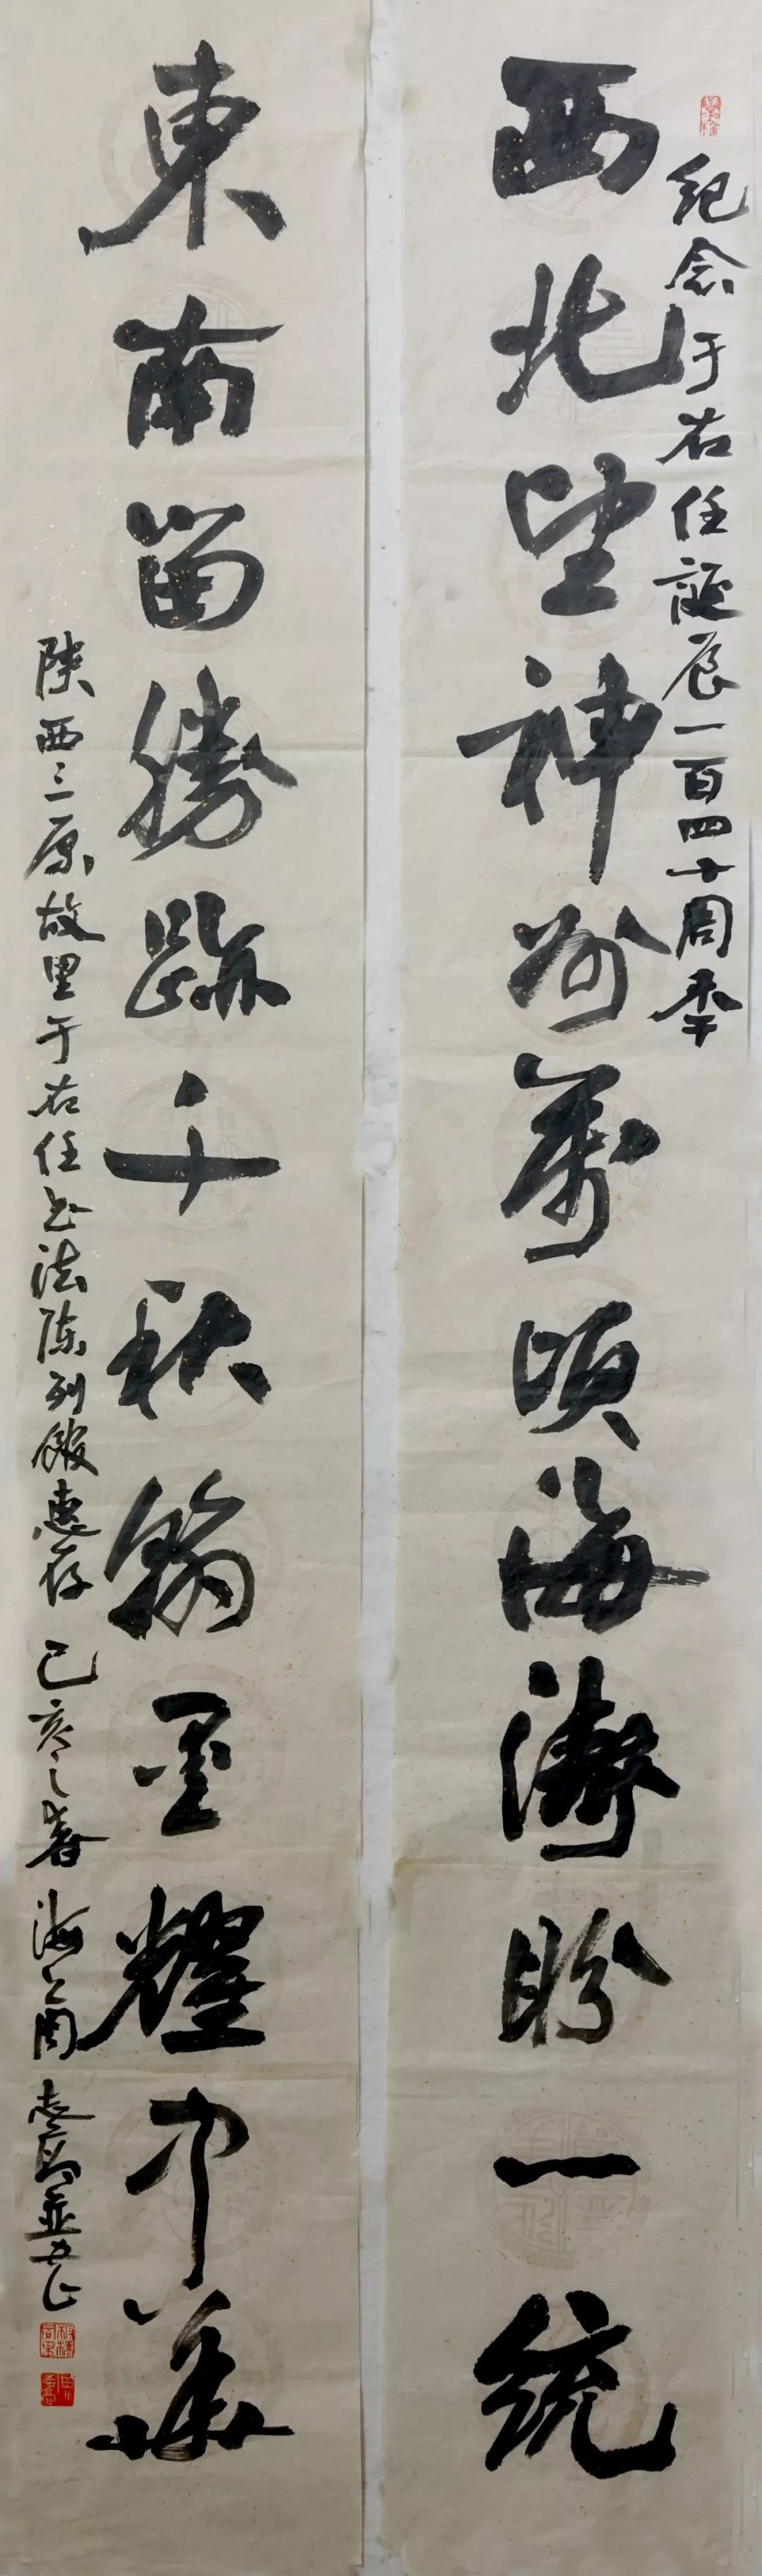 紀念于右任誕辰一百四十周年
西北望神州萬頃海濤盼一統
東南留勝跡千秋翰墨耀中華
陕西三原故里于右任书法陈列館惠存 己亥之春 海上周